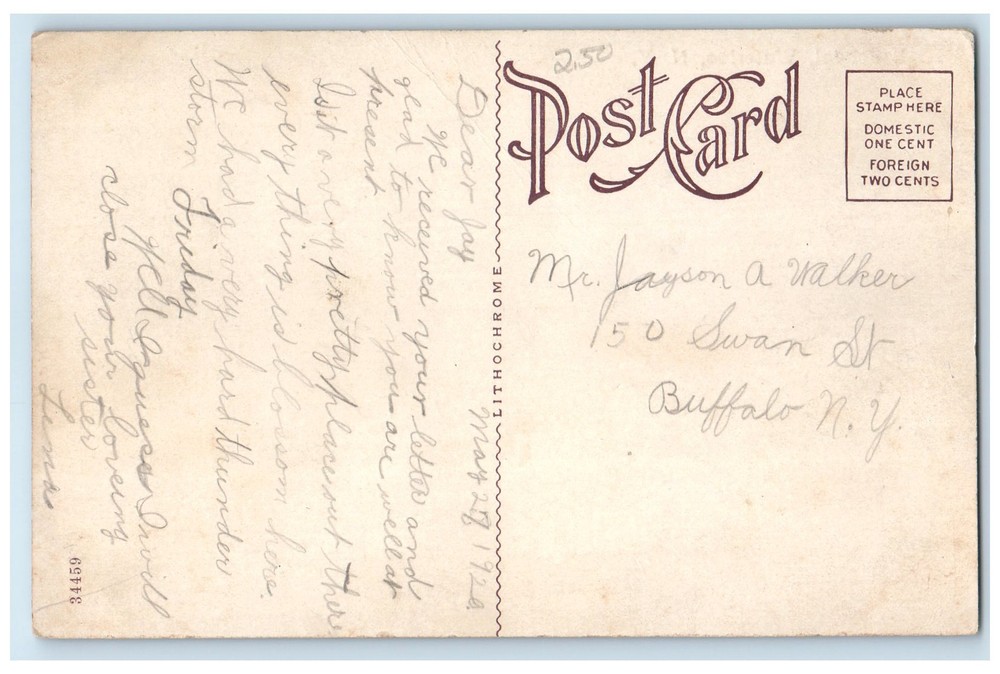 2.50
Post Card
PLACE
STAMP HERE
DOMESTIC
ONE CENT
FOREIGN
TWO CENTS
Mr. Jayson A Walker
150 Swan St
Buffalo N. Y.
LITHOCHROME
May 1920
Dear Jay
We received your letter and
glad to know you are well at
present.
Isit a very pretty place out there
every thing is blossom here.
We had a very hard thunder
storm Friday
Well I guess I will
close your loveing
sister
Lena
34459